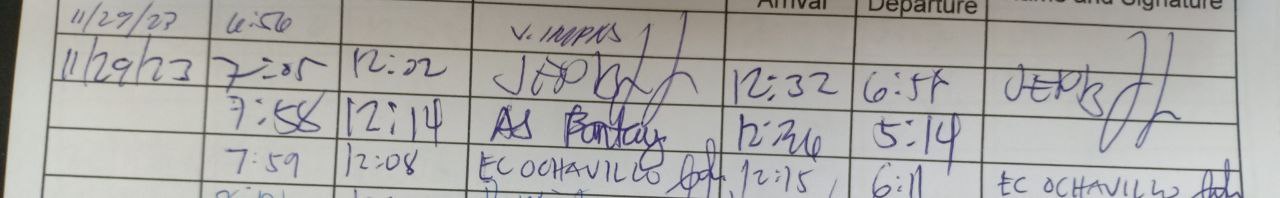 Arrival Departure and Signature
11/29/23 6:56
11/29/23 7:05 12:02 JEPB 12:32 6:58 JEPB
7:58 12:14 AS Bontay 12:36 5:14
7:59 12:08 EC OCHAVILLO 12:15 6:11 EC OCHAVILLO